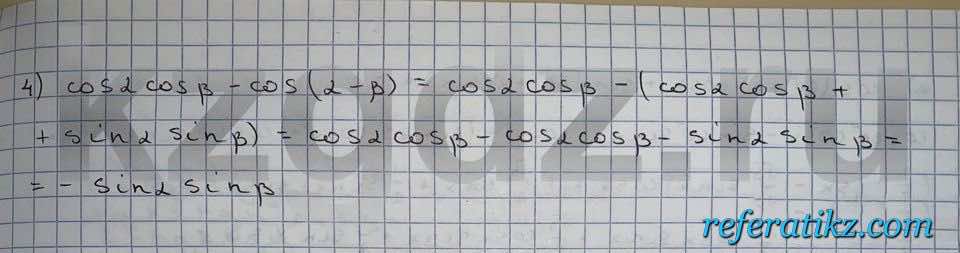 4) cosα cosβ - cos(α-β) = cosα cosβ - (cosα cosβ +
+ sinα sinβ) = cosα cosβ - cosα cosβ - sinα sinβ =
= - sinα sinβ
kzgdz.ru
referatikz.com